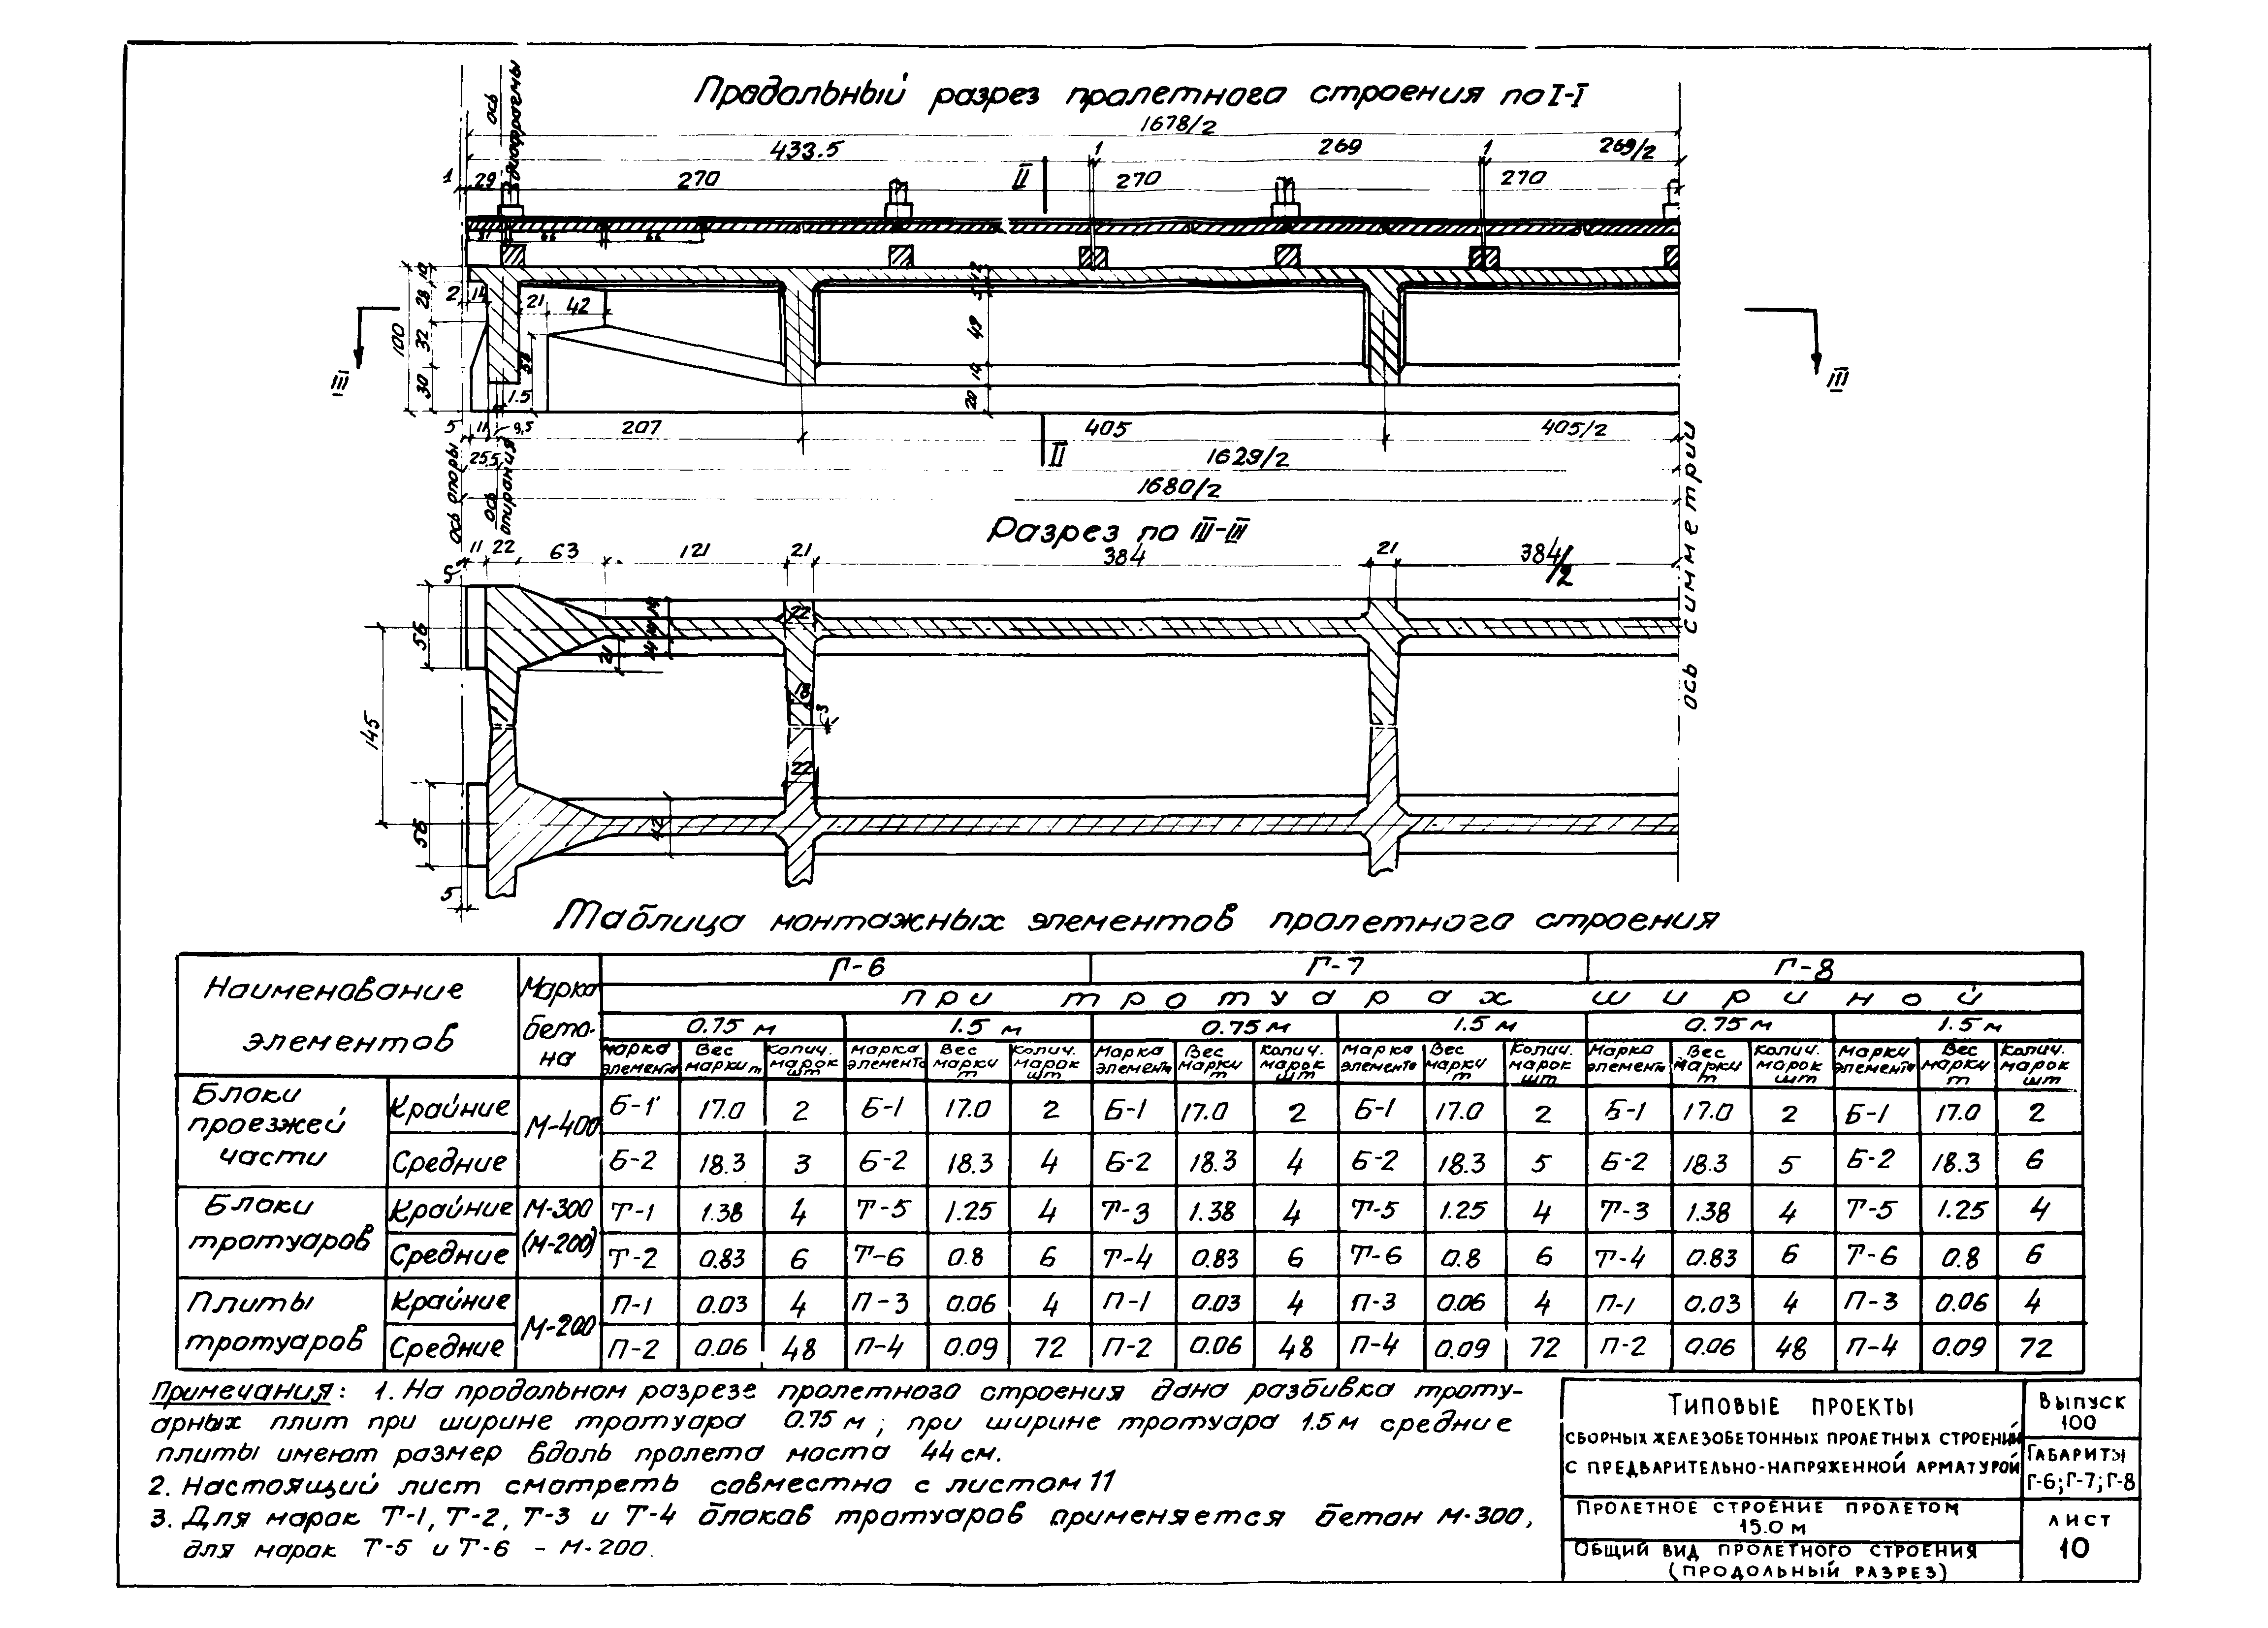 Продольный разрез пролетного строения по I-I
ось
диафрагмы
1678/2
433.5 1 269 1 269/2
1 29 270 II 270 270
31 66 66
10
28
32
30
100
2 14 21 42
58
1.5
12
5
49
14
20
III III
5 11 9,5 207 405 405/2
II
25,5 1629/2
1680/2
ось опоры
ось
опирания
ось симметрии
Разрез по III-III
5 11 22 63 121 21 384 21 384/2
56
145
56
5
14
14
14
21
22
18
3
22
42
Таблица монтажных элементов пролетного строения
Наименование элементов Марка бетона Г-6 Г-7 Г-8
при тротуарах шириной
0.75 м 1.5 м 0.75 м 1.5 м 0.75 м 1.5 м
Марка элемента Вес марки т Колич. марок шт Марка элемента Вес марки т Колич. марок шт Марка элемента Вес марки т Колич. марок шт Марка элемента Вес марки т Колич. марок шт Марка элемента Вес марки т Колич. марок шт Марка элемента Вес марки т Колич. марок шт
Блоки проезжей части Крайние М-400 Б-1 17.0 2 Б-1 17.0 2 Б-1 17.0 2 Б-1 17.0 2 Б-1 17.0 2 Б-1 17.0 2
Средние Б-2 18.3 3 Б-2 18.3 4 Б-2 18.3 4 Б-2 18.3 5 Б-2 18.3 5 Б-2 18.3 6
Блоки тротуаров Крайние М-300 (М-200) Т-1 1.38 4 Т-5 1.25 4 Т-3 1.38 4 Т-5 1.25 4 Т-3 1.38 4 Т-5 1.25 4
Средние Т-2 0.83 6 Т-6 0.8 6 Т-4 0.83 6 Т-6 0.8 6 Т-4 0.83 6 Т-6 0.8 6
Плиты тротуаров Крайние М-200 П-1 0.03 4 П-3 0.06 4 П-1 0.03 4 П-3 0.06 4 П-1 0.03 4 П-3 0.06 4
Средние П-2 0.06 48 П-4 0.09 72 П-2 0.06 48 П-4 0.09 72 П-2 0.06 48 П-4 0.09 72
Примечания: 1. На продольном разрезе пролетного строения дана разбивка троту-
арных плит при ширине тротуара 0.75 м; при ширине тротуара 1.5 м средние
плиты имеют размер вдоль пролета моста 44 см.
2. Настоящий лист смотреть совместно с листом 11
3. Для марок Т-1, Т-2, Т-3 и Т-4 блоков тротуаров применяется бетон М-300,
для марок Т-5 и Т-6 - М-200.
Типовые проекты
сборных железобетонных пролетных строений
с предварительно-напряженной арматурой
Выпуск
100
Габариты
Г-6; Г-7; Г-8
Пролетное строение пролетом
15.0 м
Общий вид пролетного строения
(продольный разрез)
лист
10